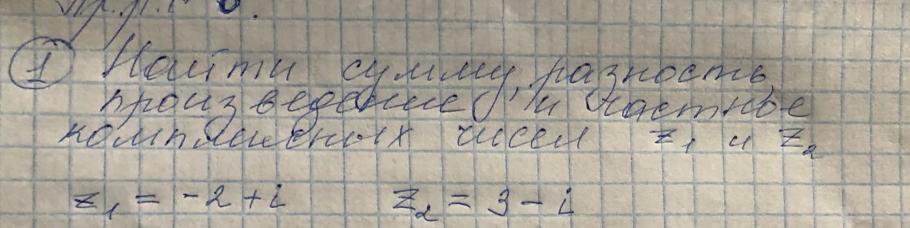 ① Найти сумму, разность,
произведение и частное
комплексных чисел z₁ и z₂
z₁ = -2 + i z₂ = 3 - i